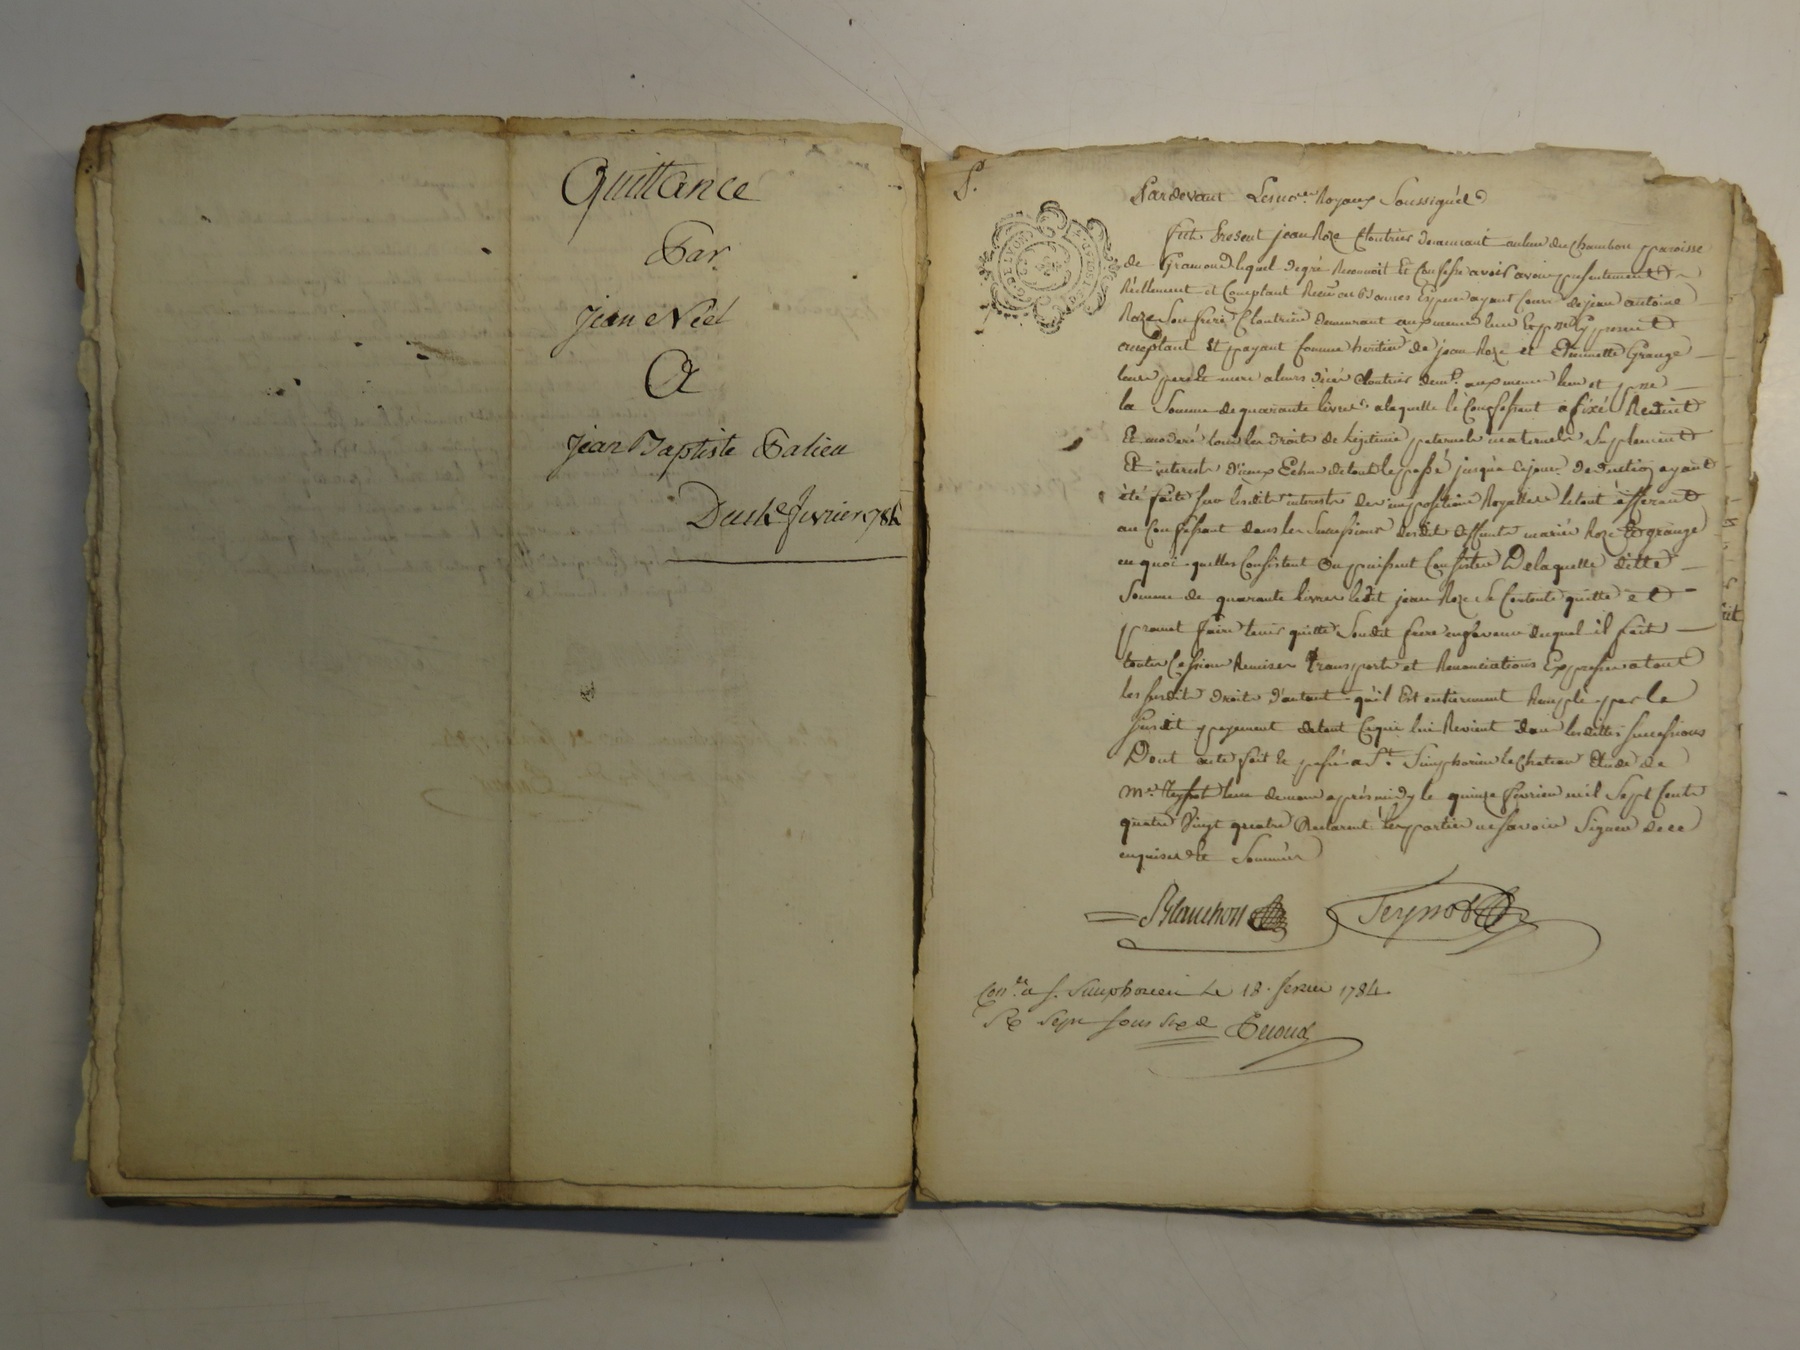 Quittance
Par
Jean Néel
A
Jean Baptiste Palieu
Du 14e fevrier 1784
P.
Pardevant Les nores Royaux Soussignés
fut Present jean Roze Cloutrier demeurant au lieu du Chambon paroisse
de Gramond lequel degré Reconnoit Et Confesse avoir avoir presentement
Réellement et Comptant Reçu en bonnes Especes ayant Cours de jean antoine
Roze Son frere Cloutrier demeurant au meme lieu Et present
acceptant Et payant Comme heritier de jean Roze et Etiennette Grange
leurs pere et mere a leurs décés Cloutrier demt. au meme lieu et psse
la Somme de quarante livres a laquelle le Confessant a fixé Reduit
Et moderé tous les droits de legitime paternels maternels Suplement
Et interests d'iceux Echus de tout le passé jusqu'a ce jour deduction ayant
été faite sur lesdits interests des impositions Royalles le tout afférant
au Confessant dans les Successions desdits deffunts mariés Roze Et grange
en quoi quelles Consistent Ou puissent Consister De laquelle ditte
Somme de quarante livres ledit jean Roze Se Contente quitte et
promet faire tenir quitte Sondit frere en faveur duquel il fait
toutes Cessions Remises transports et Renonciations Expresses a tous
les susdits droits d'autant qu'il Est entierement Rempli par le
susdit payement de tout Ce qui lui Revient dans lesdittes successions
Dont acte fait Et passé a St. Simphorien le Chateau Etude de
Me. Teynot leur demeure après midy le quinze fevrier mil Sept Cent
quatre Vingt quatre Declarent les parties ne savoir Signer de ce
enquises Et Sommées
Blanchon Teynot
Conlé a S. Simphorien le 18 fevrier 1784
R. Sept sous six d